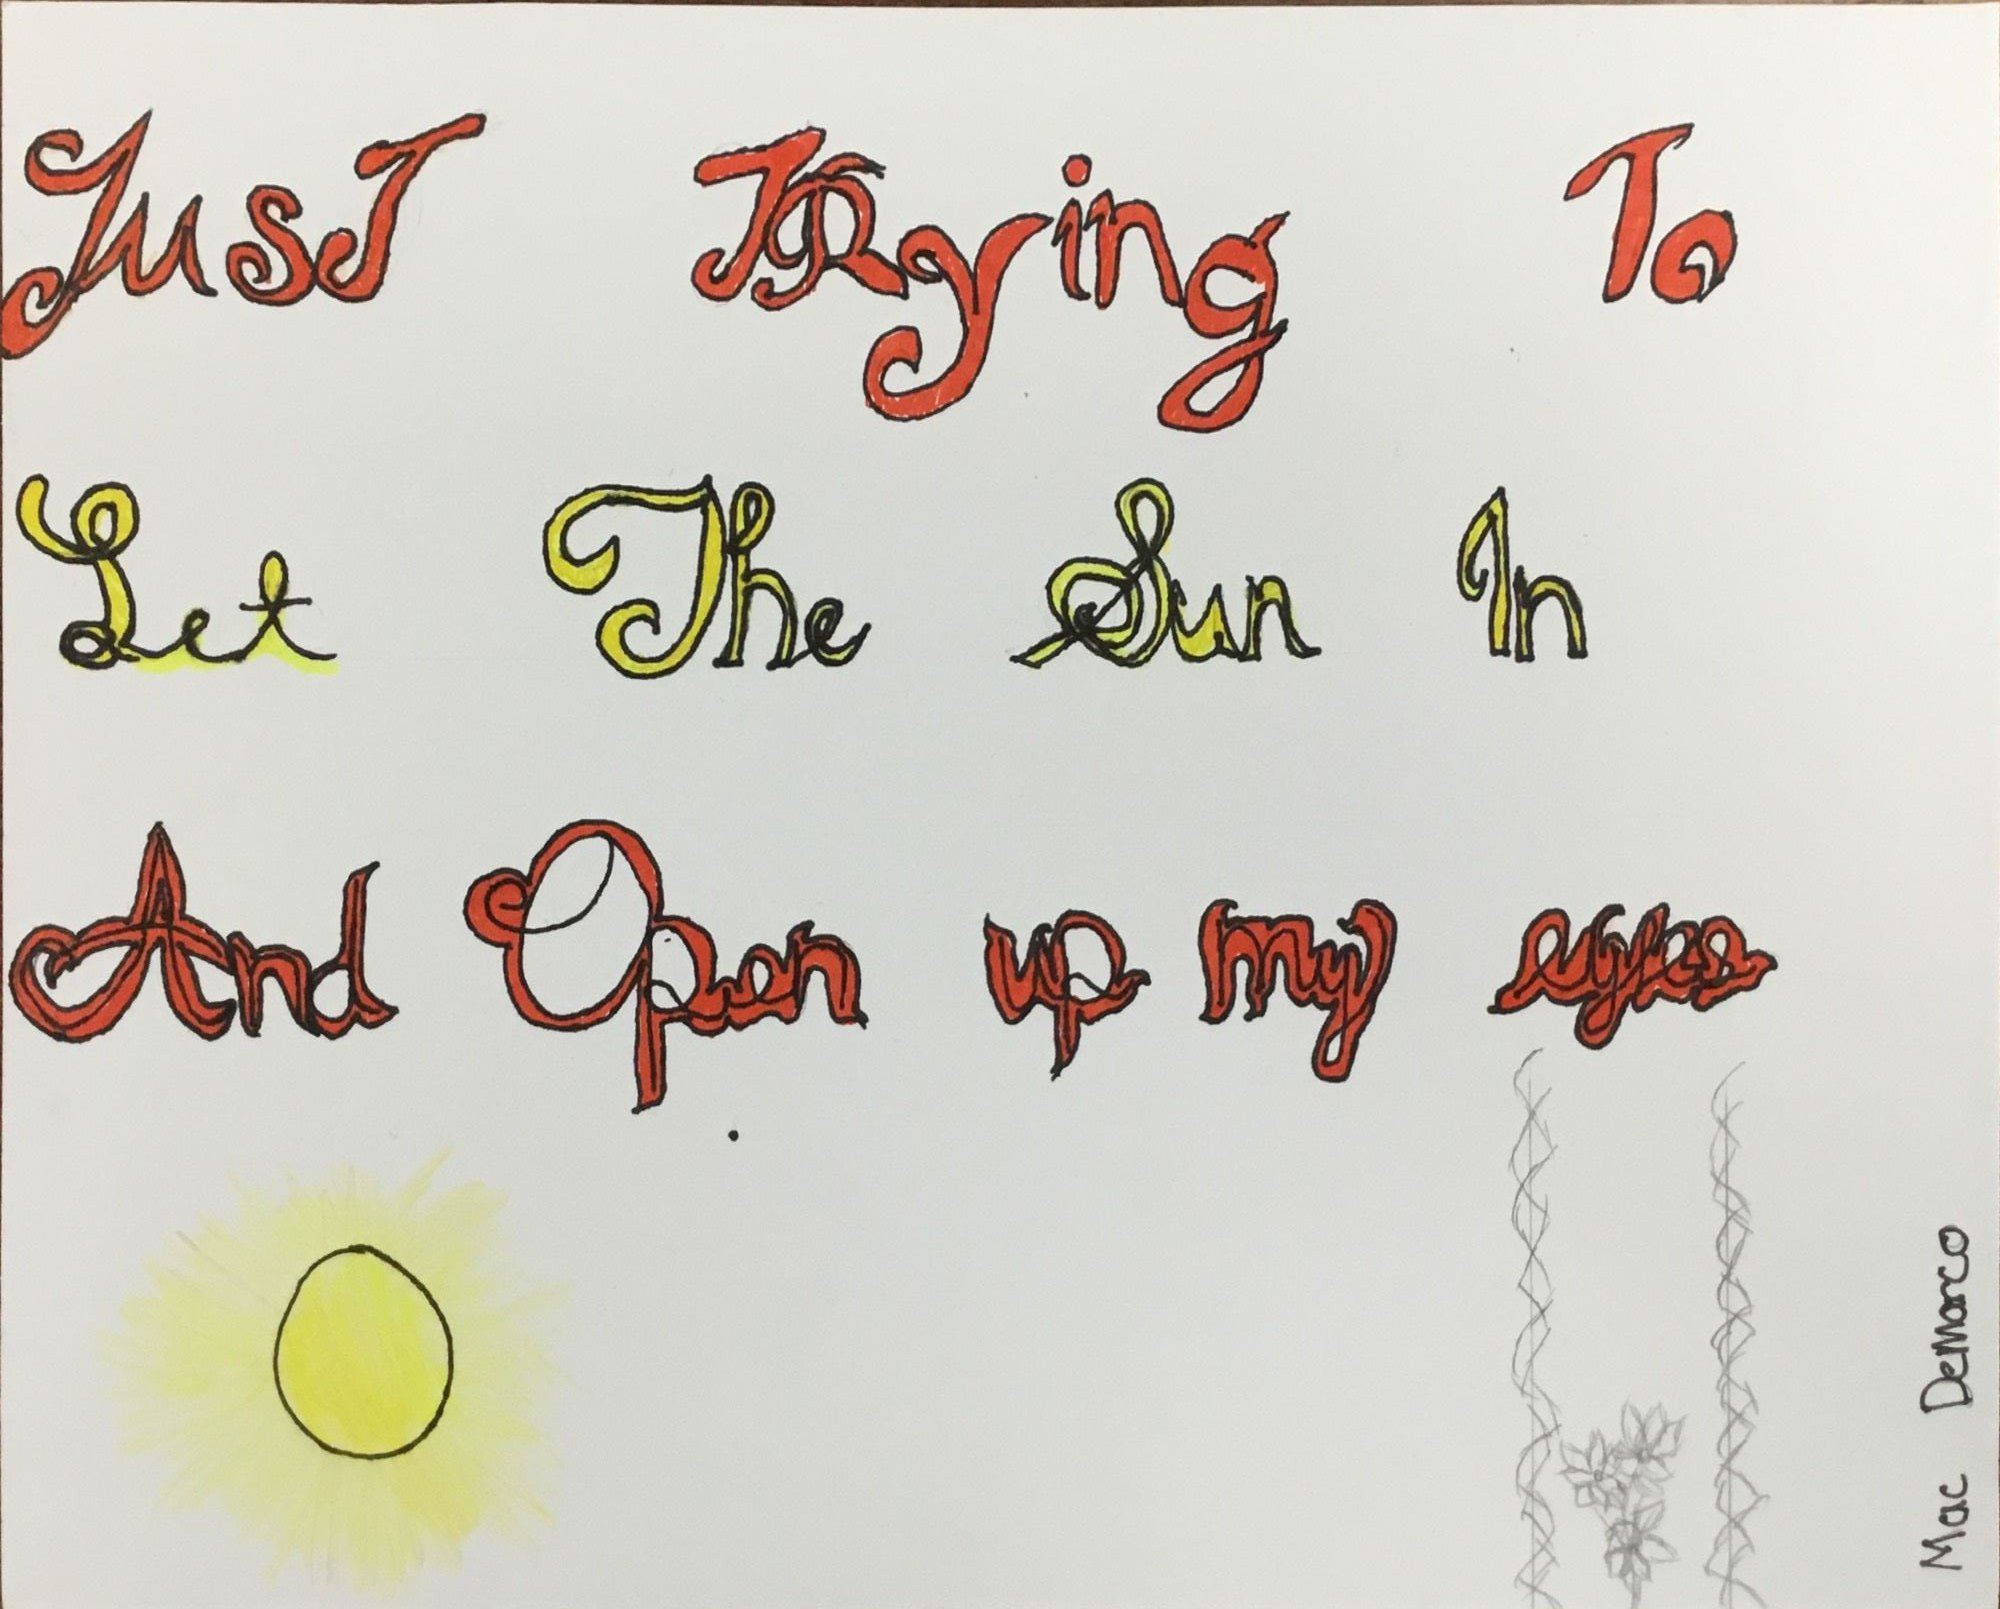 JusT TRying To
Let The Sun In
And Open up my eyes
Mac DeMarco